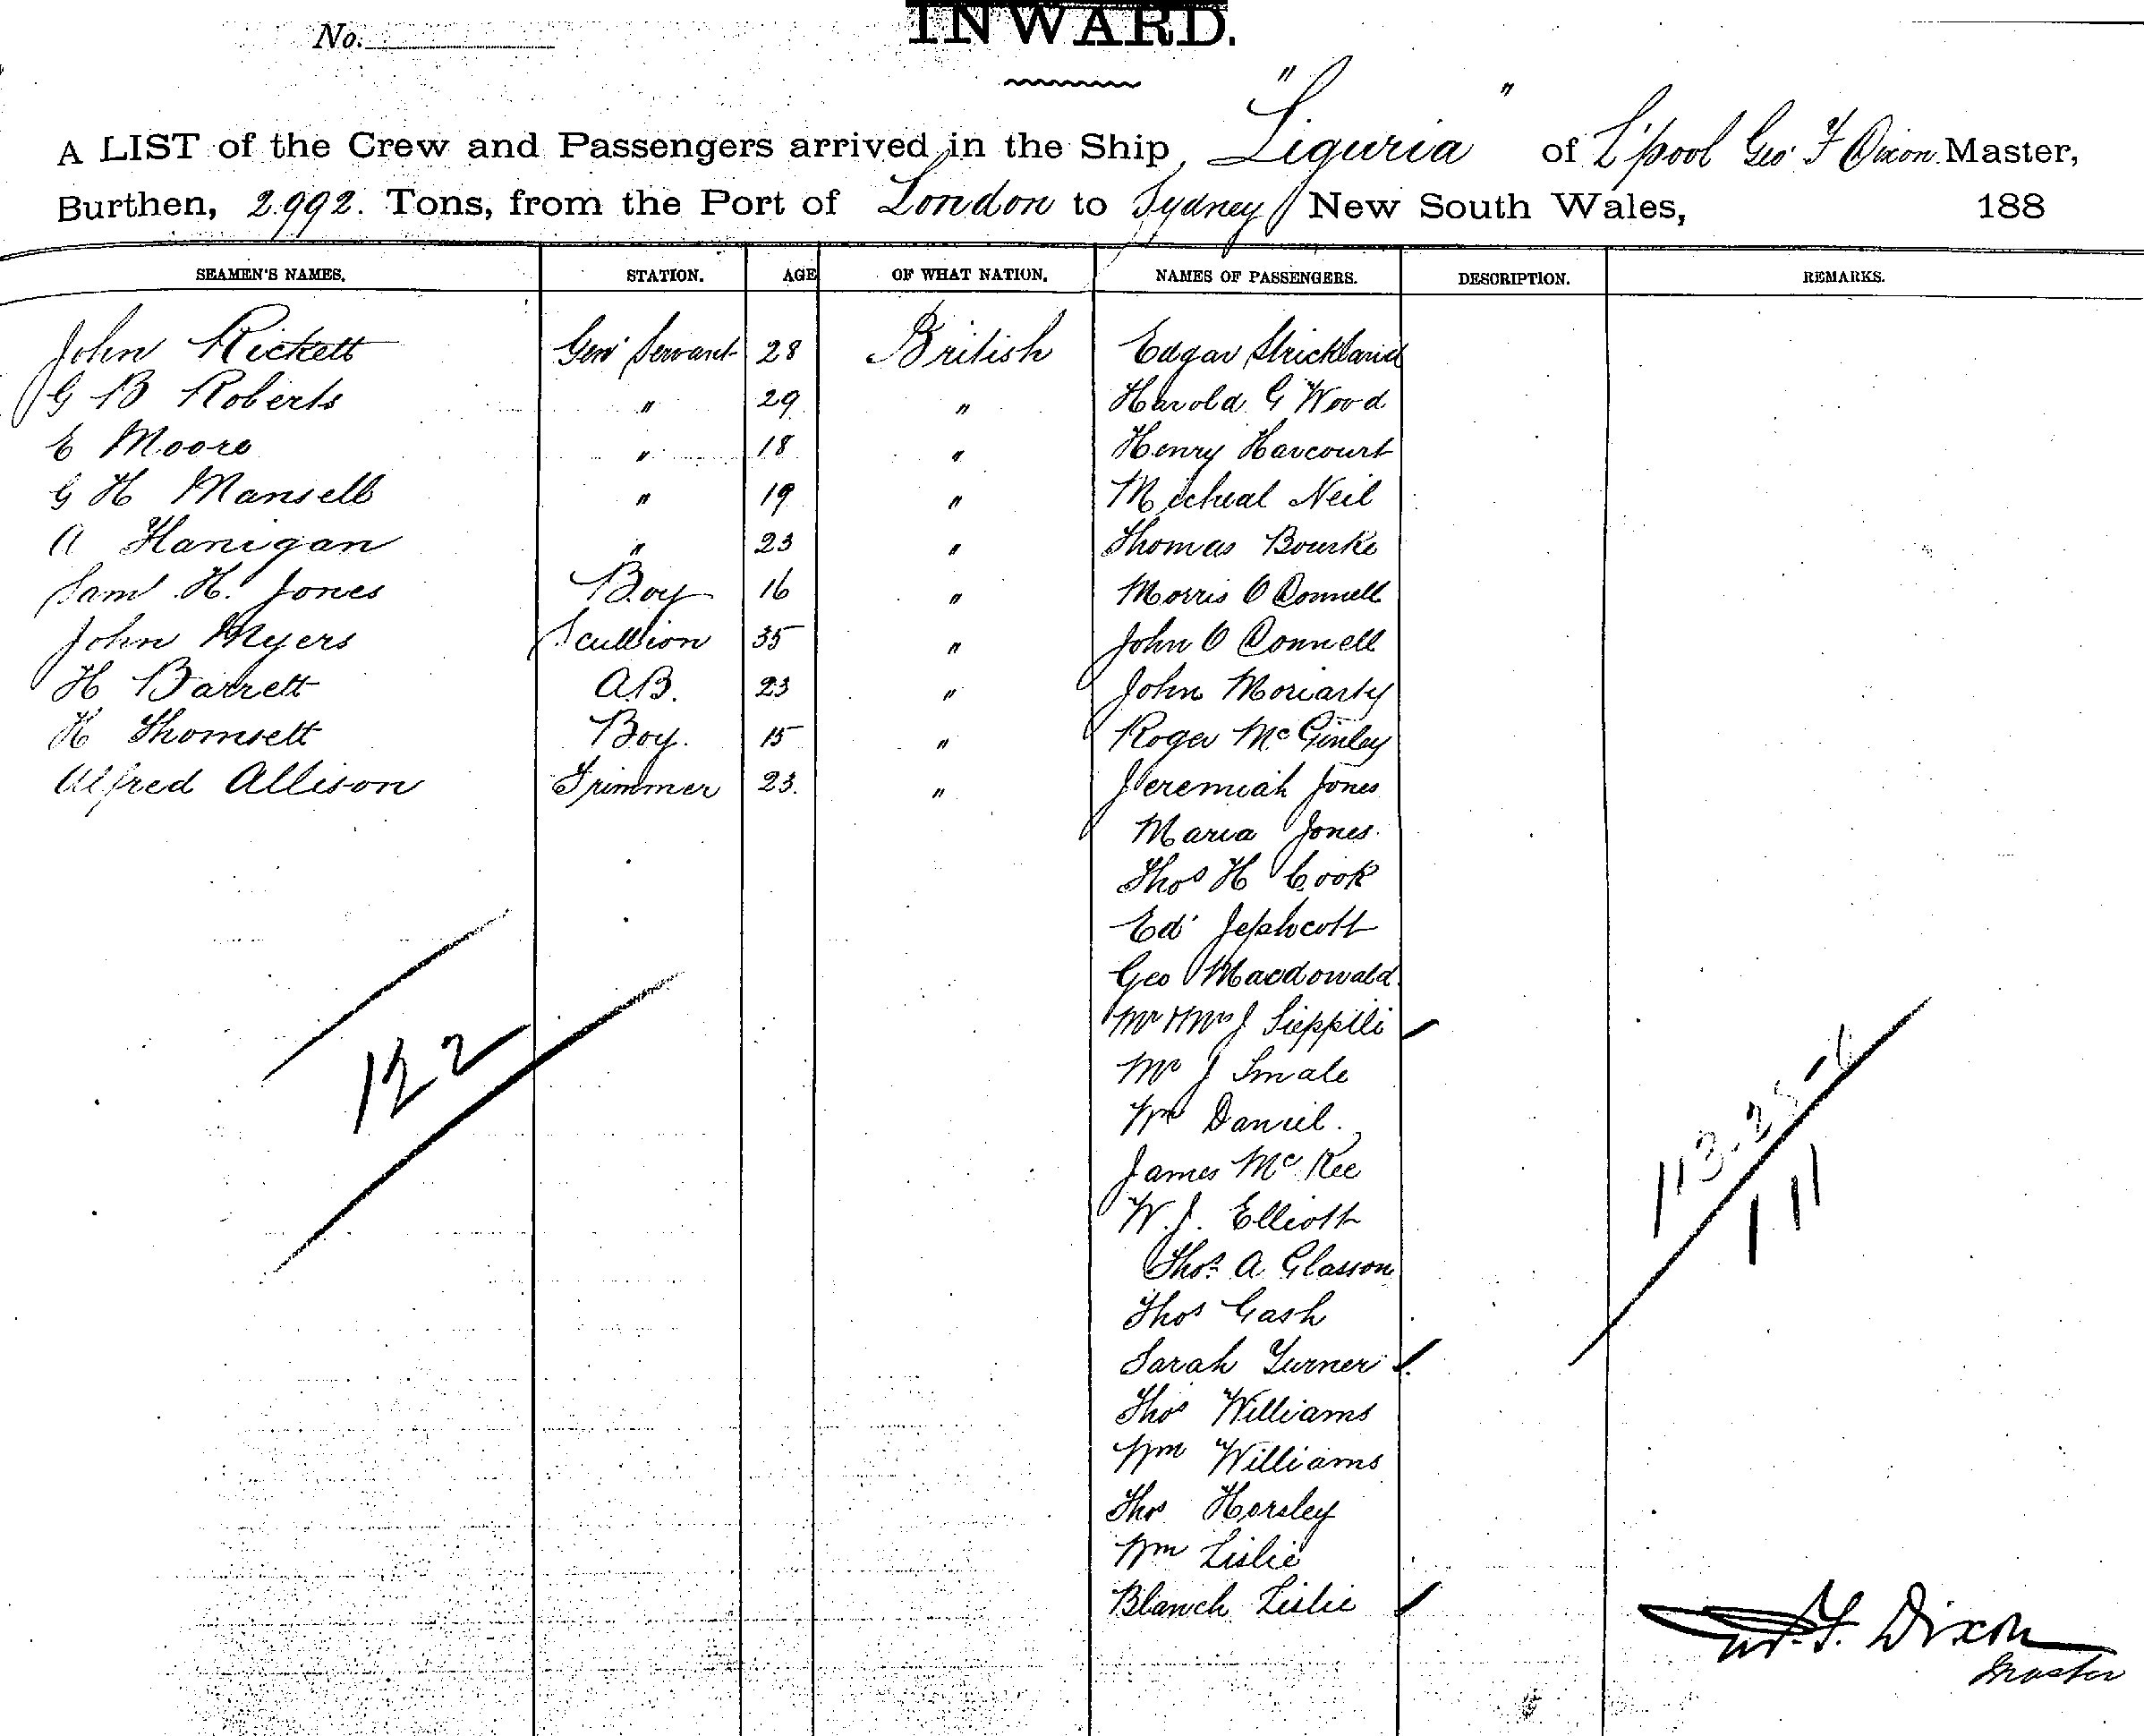 No.
INWARD.
A LIST of the Crew and Passengers arrived in the Ship "Liguria" of L'pool Geo. F Dixon Master,
Burthen, 2.992. Tons, from the Port of London to Sydney New South Wales, 188
SEAMEN'S NAMES. STATION. AGE OF WHAT NATION. NAMES OF PASSENGERS. DESCRIPTION. REMARKS.
John Rickett Genl Servant 28 British Edgar Strickland
G B Roberts " 29 " Harold G Wood
E Moore " 18 " Henry Harcourt
G H Mansell " 19 " Micheal Neil
A Hanigan " 23 " Thomas Bourke
Saml H. Jones Boy 16 " Morris O Connell
John Myers Scullion 35 " John O Connell
H Barrett A.B. 23 " John Moriarty
H Thomsett Boy. 15 " Roger McGinley
Alfred Allison Trimmer 23. " Jeremiah Jones
Maria Jones.
Thos H Cook
Ed. Jephcott
Geo Macdowald
Mr & Mrs J Sieppili
Mr J Smale
Wm Daniel.
James McKee
W.J. Elliott
Thos. A Glasson
Thos Cash
Sarah Turner
Thos Williams
Wm Williams
Thos Horsley
Wm Lislie
Blanch Lislie
122
111
F. Dixon
Master